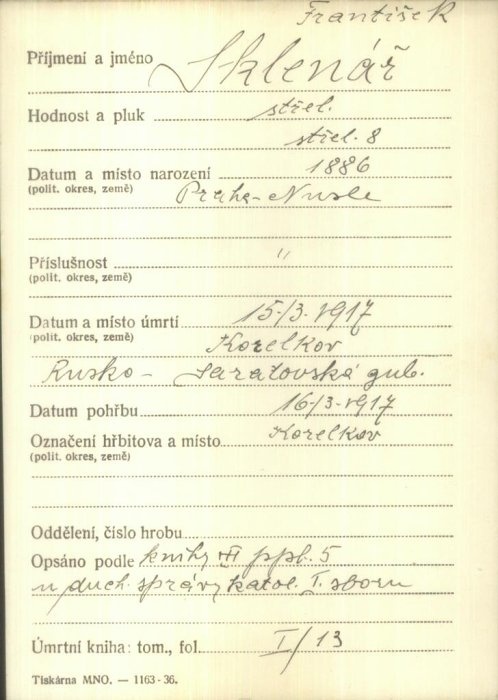 František
Příjmení a jméno Sklenář
Hodnost a pluk střel.
střel. 8
Datum a místo narození 1886
(polit. okres, země) Praha-Nusle
Příslušnost "
(polit. okres, země)
Datum a místo úmrtí 15/3. 1917
(polit. okres, země) Kozelkov
Rusko - Saratovská gub.
Datum pohřbu 16/3-1917
Označení hřbitova a místo Kozelkov
(polit. okres, země)
Oddělení, číslo hrobu
Opsáno podle knihy ppl. 5
u duch. správy katol. I. sboru
Úmrtní kniha: tom., fol. I/13
Tiskárna MNO. — 1163-36.